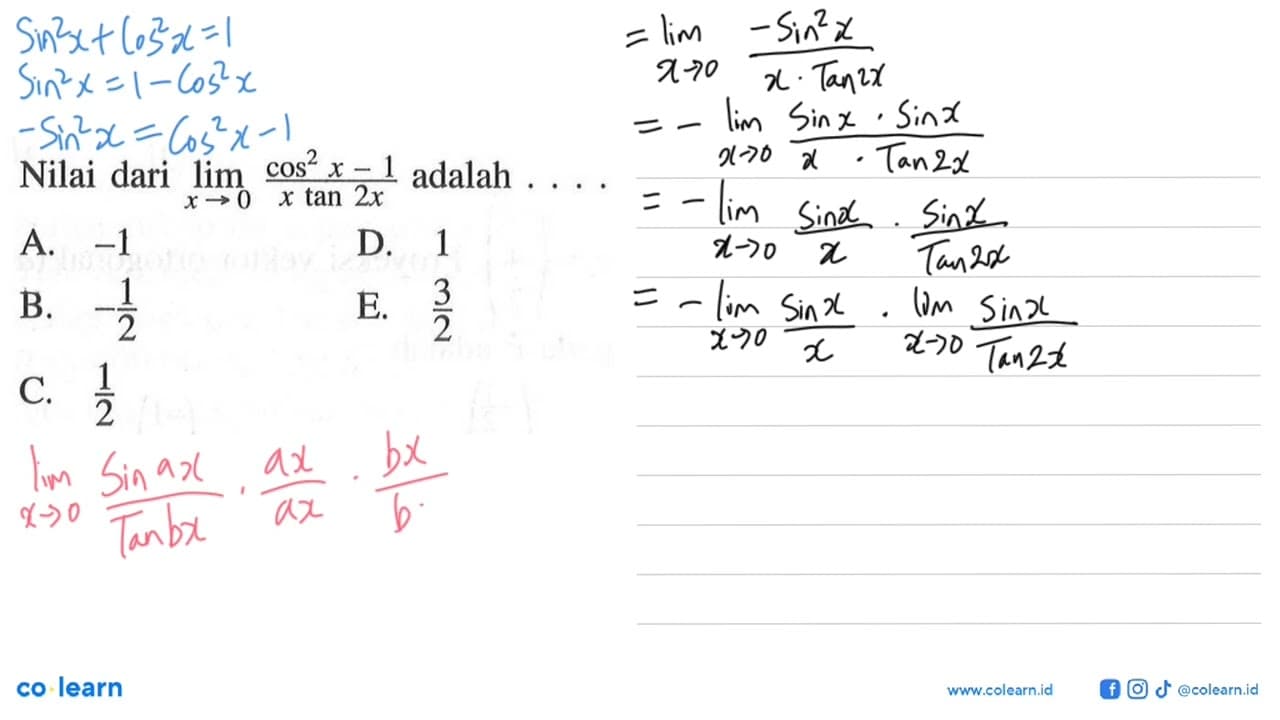 Sin²x + Cos²x = 1
Sin²x = 1 - Cos²x
-Sin²x = Cos²x - 1
Nilai dari lim x→0 (cos² x - 1)/(x tan 2x) adalah . . . .
A. -1
B. -1/2
C. 1/2
D. 1
E. 3/2
lim x→0 (Sin ax)/(Tan bx) . (ax)/(ax) . (bx)/(b
= lim x→0 (-Sin²x)/(x . Tan 2x)
= - lim x→0 (Sin x . Sin x)/(x . Tan 2x)
= - lim x→0 (Sin x)/(x) . (Sin x)/(Tan 2x)
= - lim x→0 (Sin x)/(x) . lim x→0 (Sin x)/(Tan 2x)
co learn
www.colearn.id @colearn.id